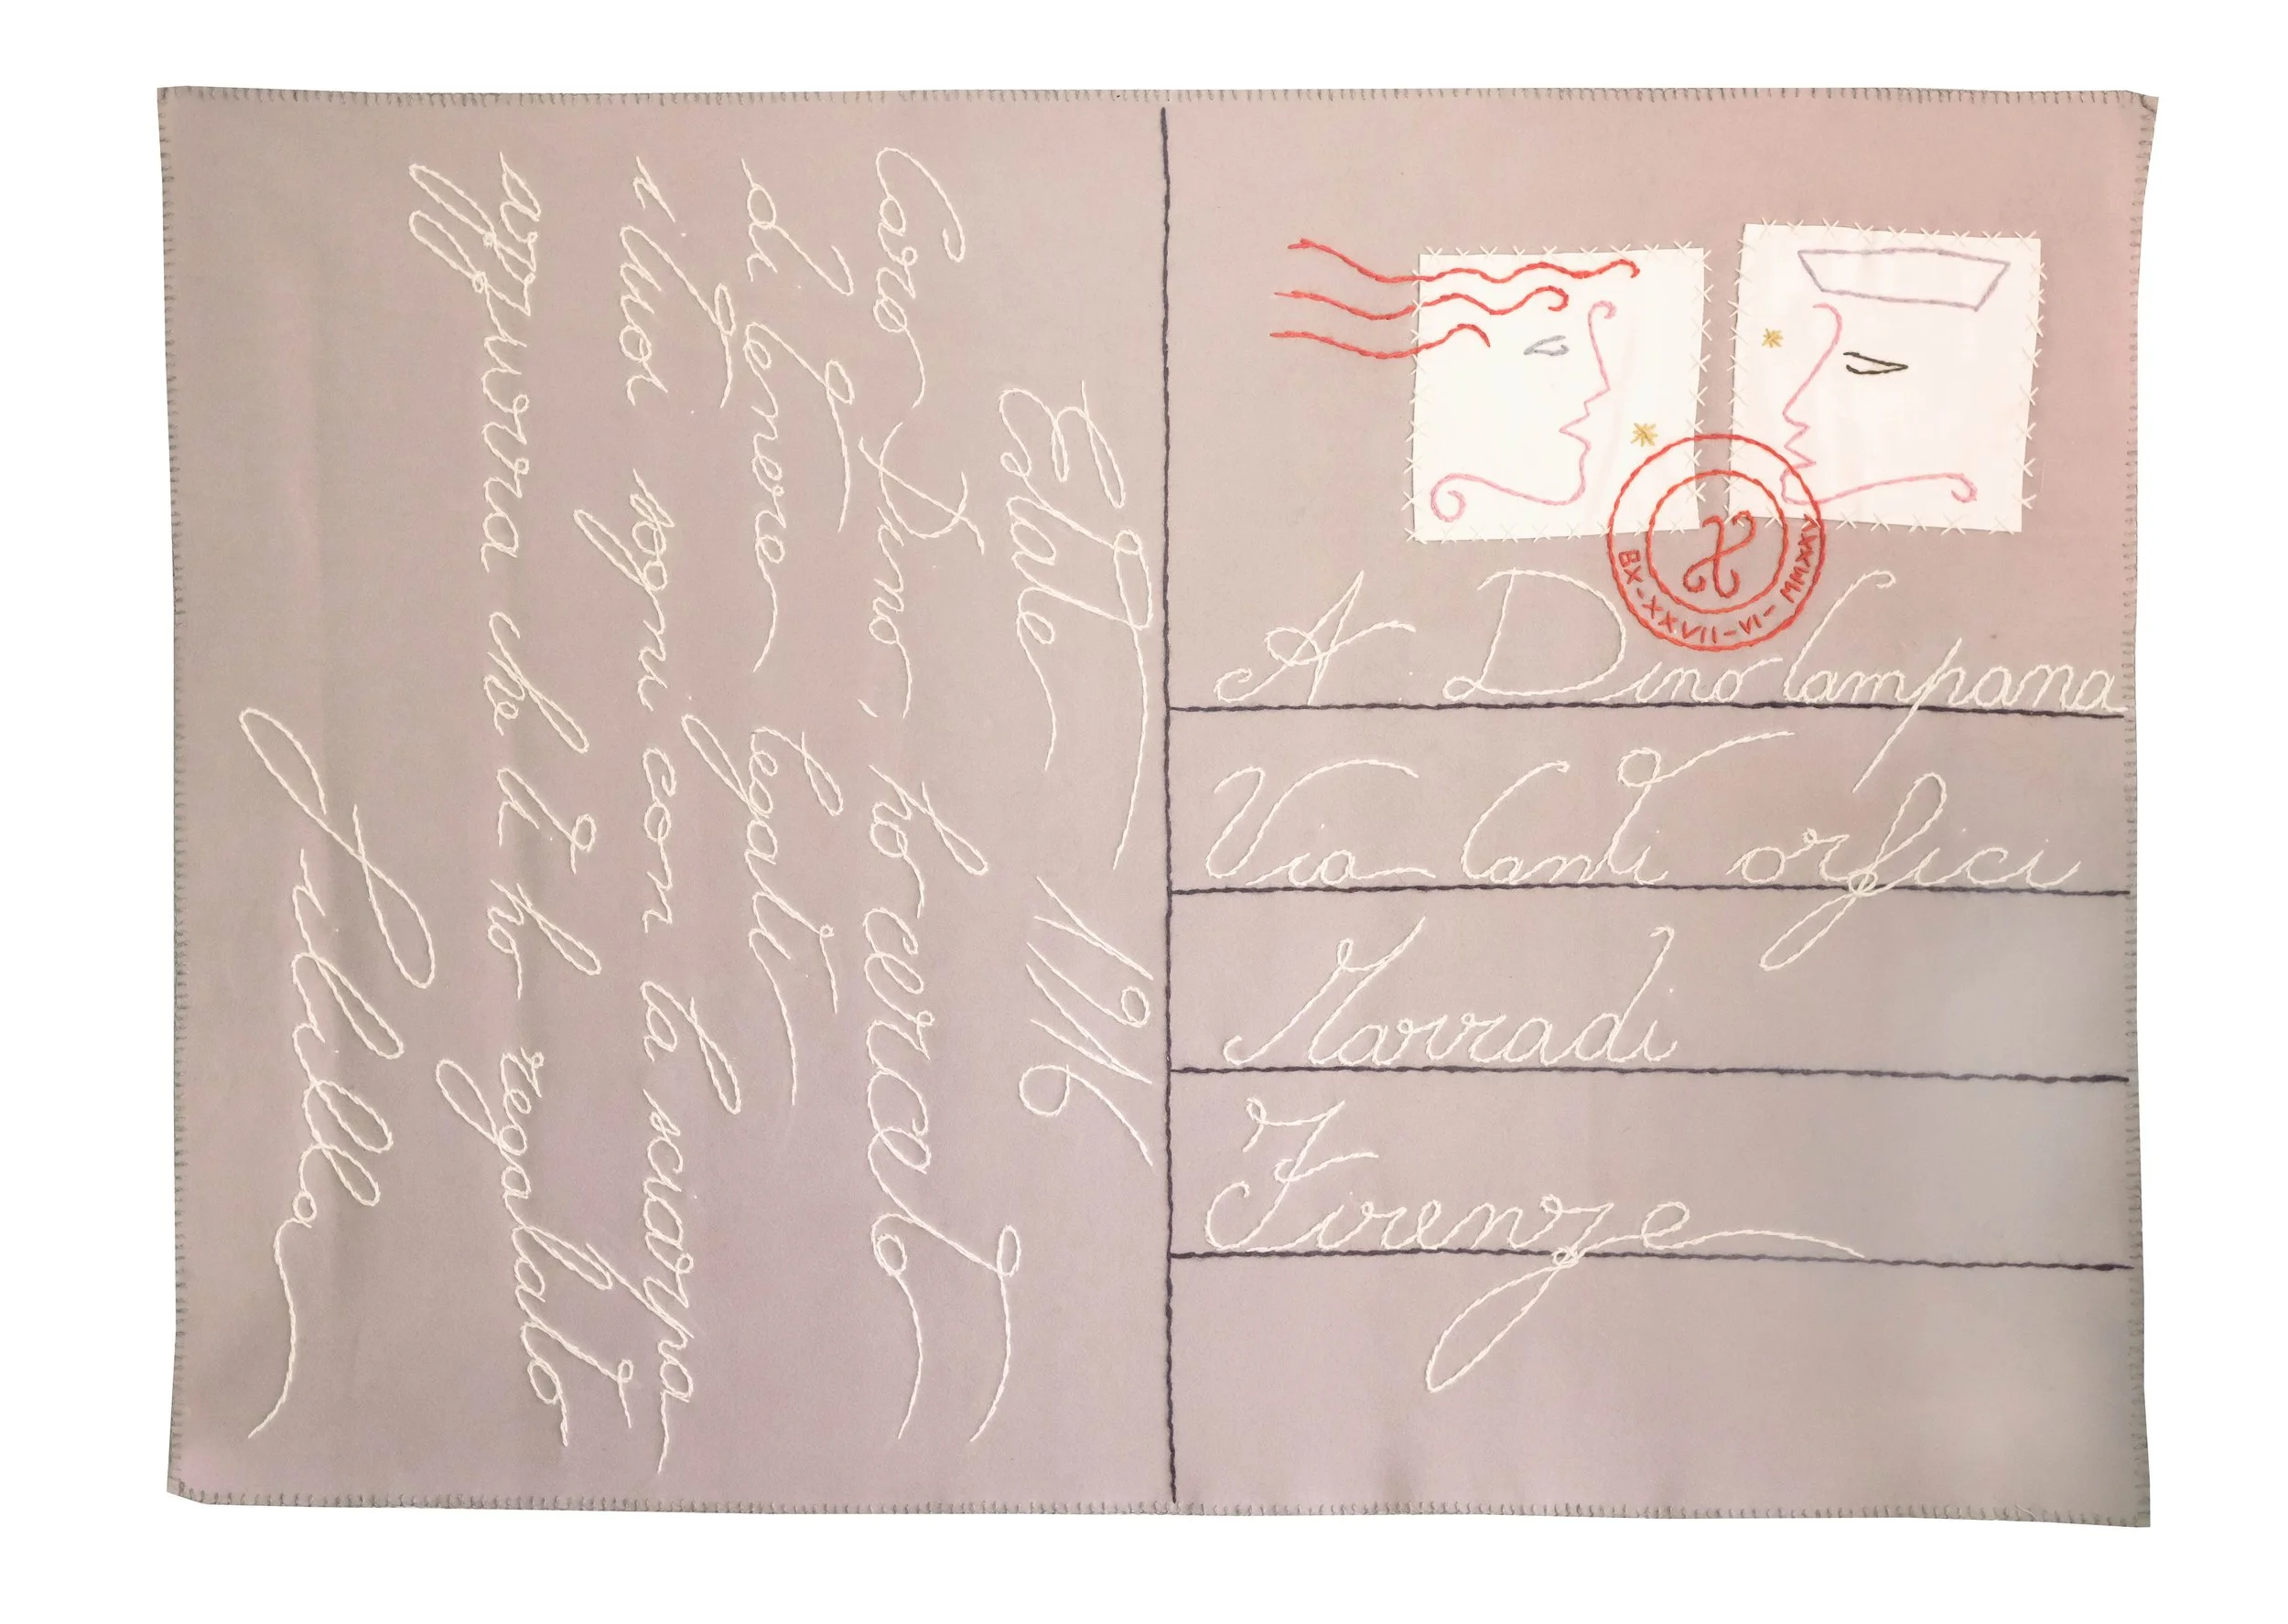 Estate 1916
Caro Dino, ho cercato
di tenere legati
i tuoi sogni con la sciarpa
azzurra che ti ho regalato
Sibilla
BX-XXVII-VI-MMXXV
A Dino Campana
Via Canti orfici
Marradi
Firenze